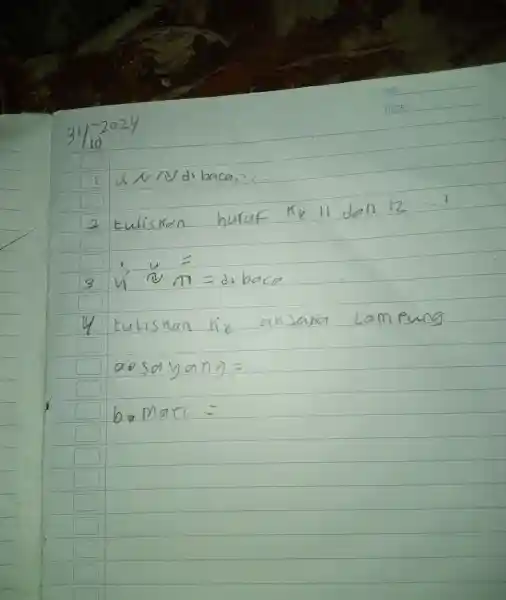 31/10-2024
1 dibaca...
2 tuliskan huruf ke 11 dan 12 ...!
3 = dibaca
4 tuliskan ke aksara Lampung
a. sayang =
b. mari =